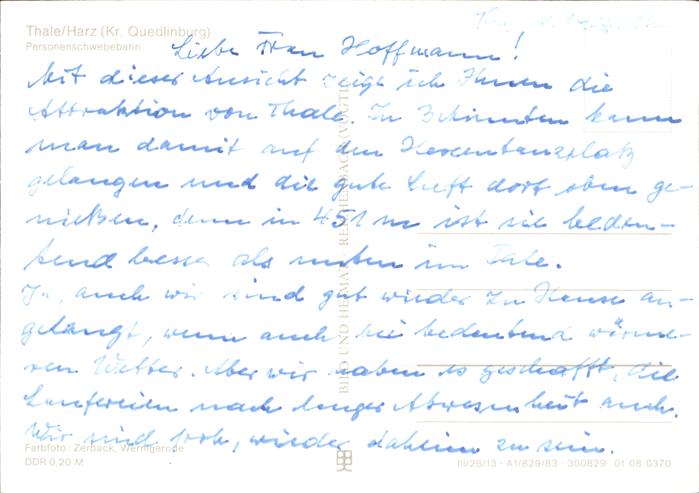 Thale/Harz (Kr. Quedlinburg)
Personenschwebebahn
Liebe Frau Hoffmann!
Mit dieser Ansicht zeige ich Ihnen die
Attraktion von Thale. In 3 Minuten kann
man damit auf den Hexentanzplatz
gelangen und die gute Luft dort oben ge-
nießen, denn in 451 m ist sie bedeu-
tend besser als unten im Tale.
Ja, auch wir sind gut wieder zu Hause an-
gelangt, wenn auch bei bedeutend wärme-
ren Wetter. Aber wir haben es geschafft, die
Laufereien nach langer Abwesenheit auch.
Wir sind froh, wieder daheim zu sein.
Farbfoto: Zerback, Wernigerode
DDR 0,20 M
III/26/13 · A1/829/83 · 300829 01 08 0370
BILD UND HEIMAT REICHENBACH (VOGTL)